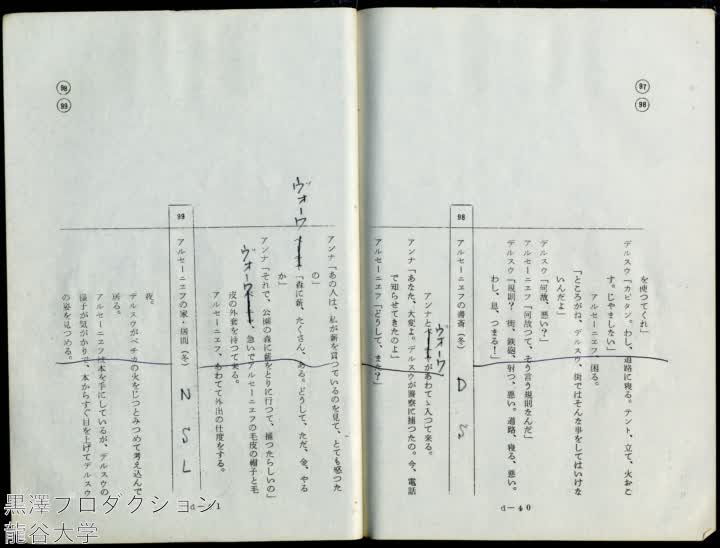 97
98
を使つてくれ」
デルスウ「カピタン。わし、道路に寝る。テント、立て、火おこ
す。じやましない」
アルセーニエフ、困る。
「ところがね、デルスウ、街ではそんな事をしてはいけな
いんだよ」
デルスウ「何故、悪い?」
アルセーニエフ「何故つて、そう言う規則なんだ」
デルスウ「規則? 街、鉄砲、射つ、悪い。道路、寝る、悪い。
わし、息、つまる!」
98 アルセーニエフの書斎(冬) D S
ヴォーワ
アンナと
があわてゝ入つて来る。
アンナ「あなた、大変よ。デルスウが警察に捕つたの。今、電話
で知らせてきたのよ」
アルセーニエフ「どうして、また?」
d-40
98
99
アンナ「あの人は、私が薪を買つているのを見て、とても怒つた
の」
ヴォーワ
「森に薪、たくさん、ある。どうして、ただ、金、やる
か」
アンナ「それで、公園の森に薪をとりに行つて、捕つたらしいの」
ヴォーワ
、急いでアルセーニエフの毛皮の帽子と毛
皮の外套を持つて来る。
アルセーニエフ、あわてて外出の仕度をする。
99 アルセーニエフの家・居間(冬) N S L
夜。
デルスウがペチカの火をじつとみつめて考え込んで
居る。
アルセーニエフは本を手にしているが、デルスウの
様子が気がかりで、本からすぐ目を上げてデルスウ
の姿を見つめる。
d-41
黒澤プロダクション
龍谷大学